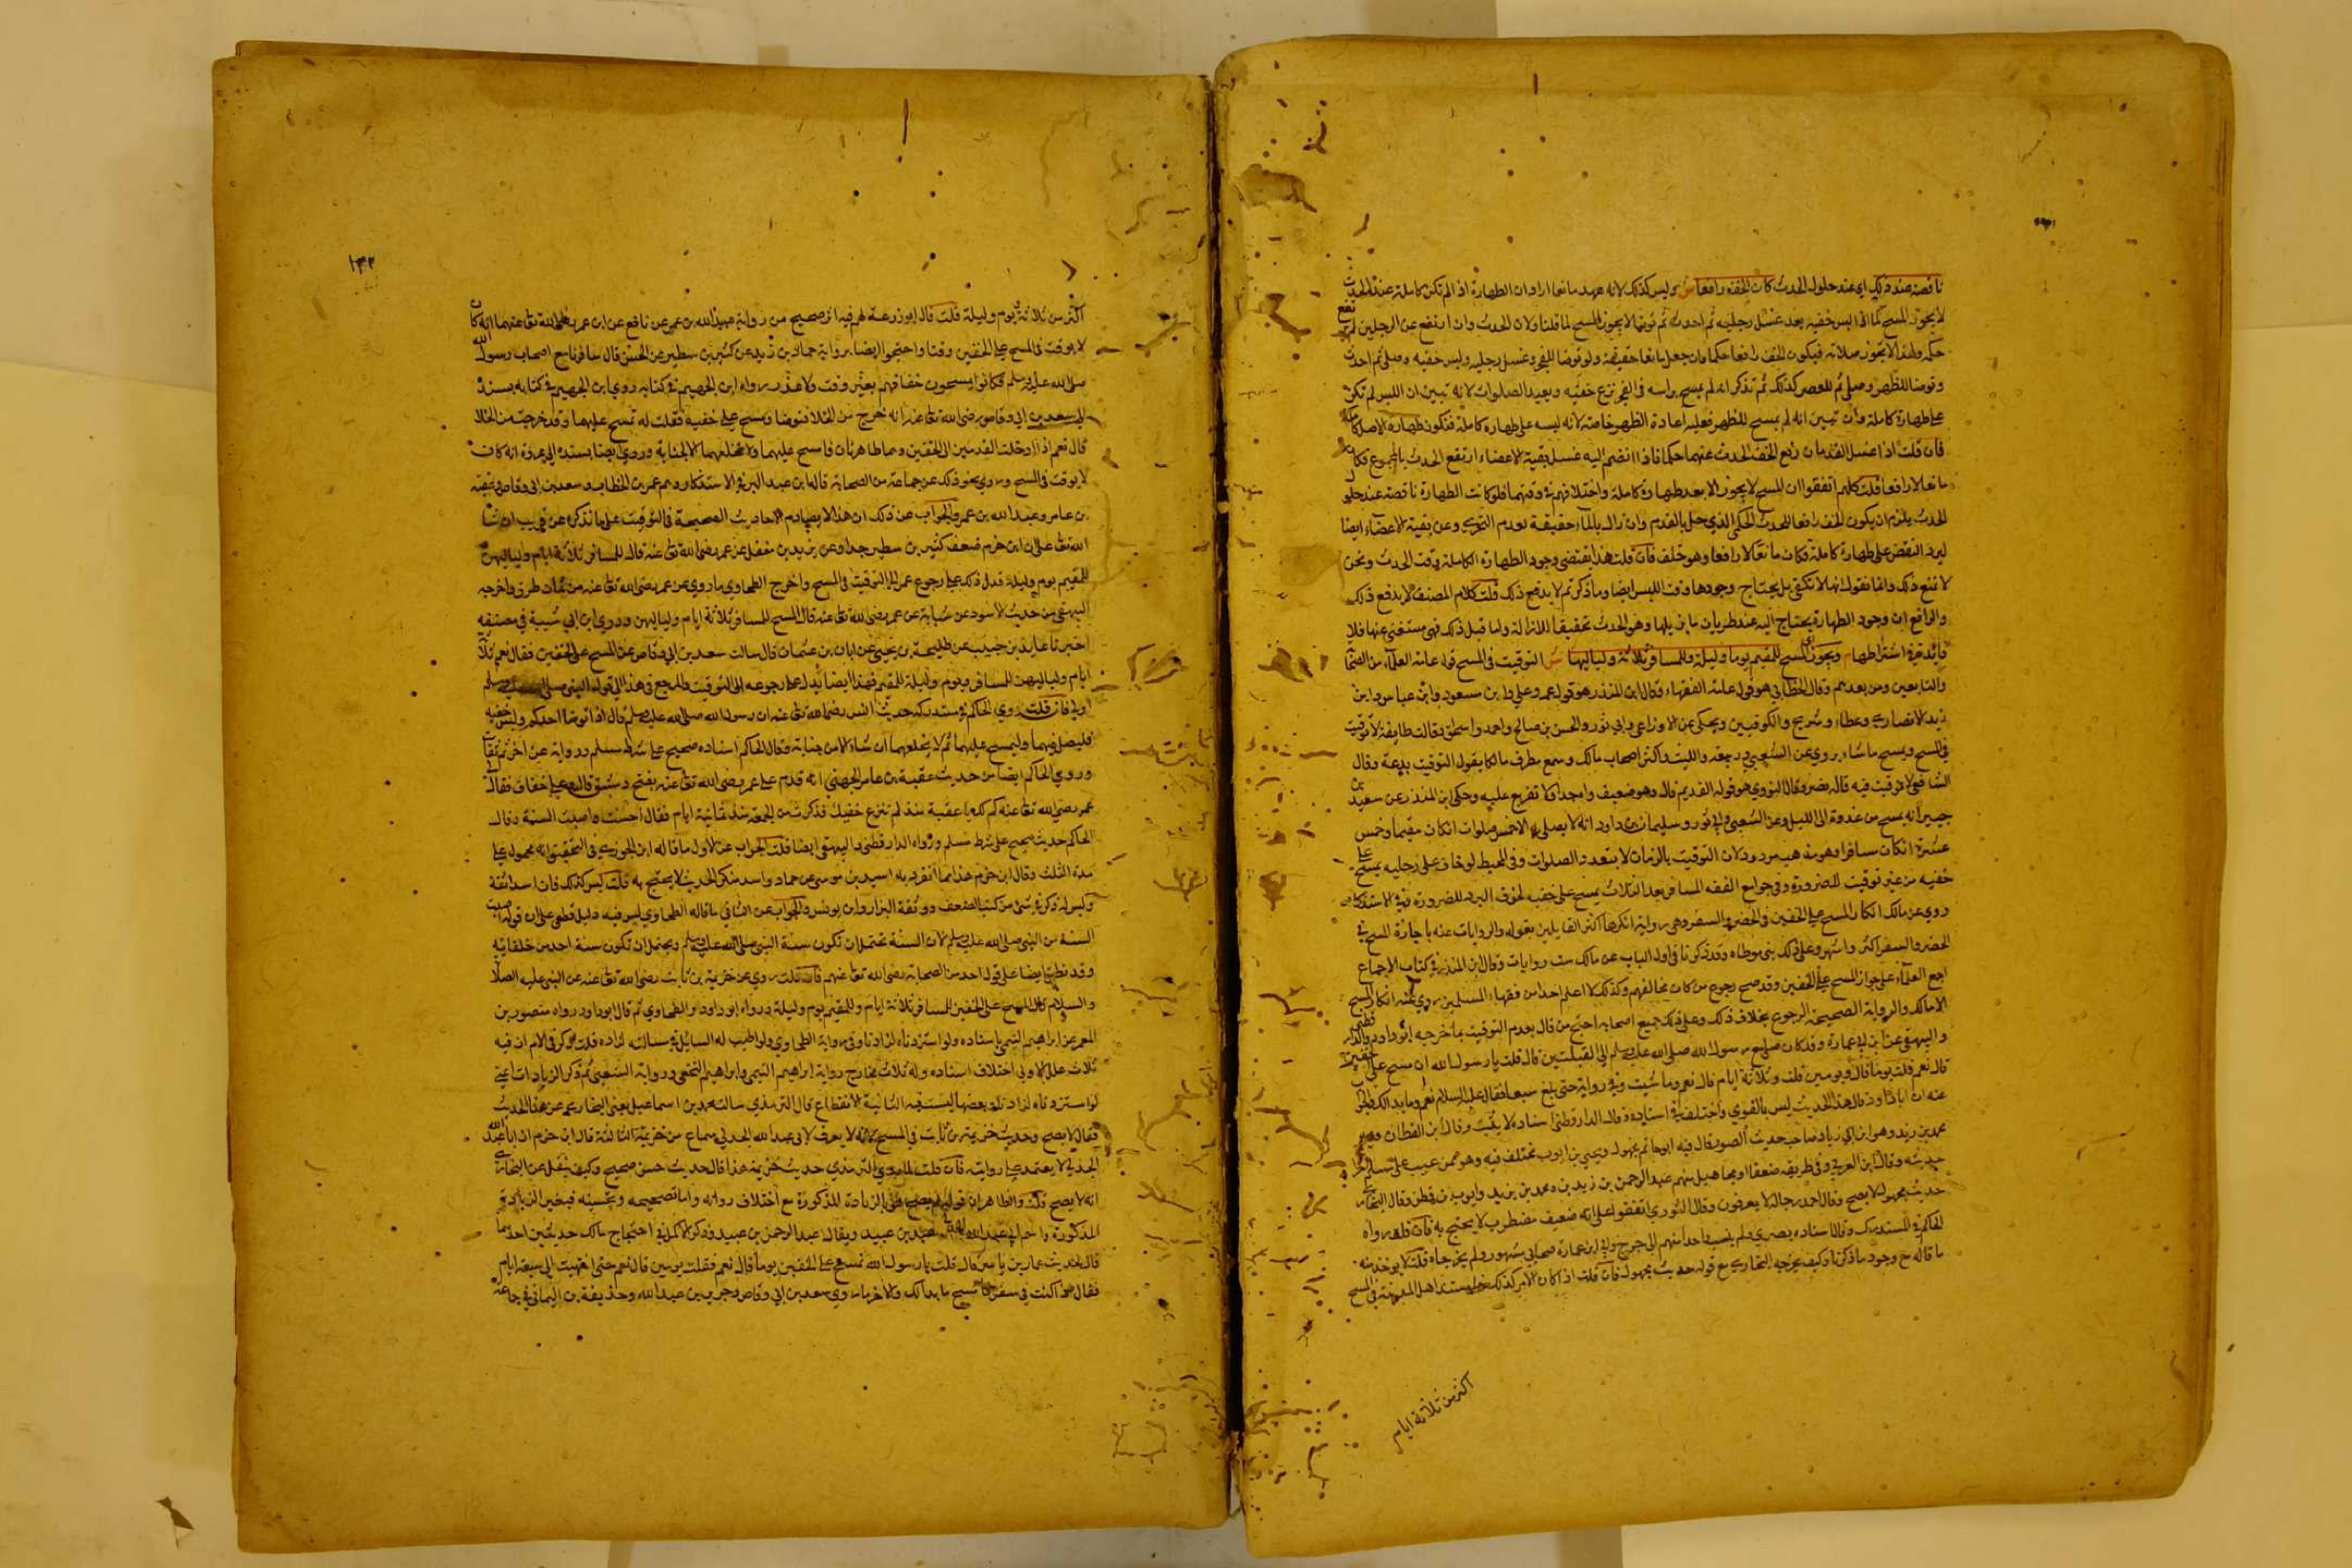 ناقصة عند ذلك اي عند حلول الحدث كان الخف رافعا ش وليس كذلك لانه عهد مانعا اراد ان الطهارة اذا لم تكن كاملة عند الحدث
لا يجوز المسح كما اذا لبس خفيه بعد غسل رجليه ثم احدث ثم توضا لا يجوز المسح لما قلنا ولان الحدث وان ارتفع عن الرجلين لم يرتفع
حكمه ولهذا لا يجوز صلاته فيكون الخف رافعا حكما وان جعل مانعا حقيقة ولو توضا للفجر وغسل رجليه ولبس خفيه وصلى ثم احدث
وتوضا للظهر وصلى ثم للعصر كذلك ثم تذكر انه لم يمسح براسه في الفجر نزع خفيه ويعيد الصلوات لانه تبين ان اللبس لم تكن
على طهارة كاملة وان تبين انه لم يمسح للظهر فعليه اعادة الظهر خاصة لانه لبسه على طهارة كاملة فتكون طهارة الاصل كاملة
فان قلت اذا غسل القدمان رفع الخف الحدث عنهما حكما فاذا انضم اليه غسل بقية الاعضاء ارتفع الحدث بالمجموع فكان
مانعا لا رافعا قلت كلهم اتفقوا ان المسح لا يجوز الا بعد طهارة كاملة واختلافهم في وقتهما فلو كانت الطهارة ناقصة عند حلول
الحدث يلزم ان يكون الخف رافعا للحدث الحكمي الذي حل بالقدم وان زال بالماء حقيقة لعدم التجزي وعن بقية الاعضاء ايضا
ليرد النقض على طهارة كاملة فكان مانعا لا رافعا وهو خلف فان قلت هذا يقتضي وجود الطهارة الكاملة وقت الحدث ونحن
لا نمنع ذلك وانما نقول انها لا تكفي بل يحتاج وجودها وقت اللبس ايضا وما ذكرتم لا يدفع ذلك قلت كلام المصنف لا يدفع ذلك
والرافع ان وجود الطهارة يحتاج اليه عند طريان ما يزيلها وهو الحدث تحقيقا للازالة واما قبل ذلك فهي مستغنى عنها فلا
فائدة في اشتراطها م ويجوز المسح للمقيم يوما وليلة وللمسافر ثلاثة ولياليها ش اي التوقيت في المسح قول عامة العلماء من الصحابة
والتابعين ومن بعدهم وقال الخطابي هو قول عامة الفقهاء وقال ابن المنذر هو قول عمر وعلي وابن مسعود وابن عباس وابن
زيد الانصاري وعطاء وشريح والكوفيين ويحكى عن الاوزاعي وابي ثور والحسن بن صالح واحمد واسحق وقالت طايفة لا توقيت
في المسح ويمسح ما شاء يروى عن الشعبي وربيعة والليث واكثر اصحاب مالك وسمع مطرف مالكا يقول التوقيت بدعة وقال
الشافعي لا توقيت فيه قاله بمصر وقال النووي هو قوله القديم قال وهو ضعيف واه جدا ولا تفريع عليه وحكى ابن المنذر عن سعيد بن
جبير انه يمسح من غدوة الى الليل وعن الشعبي وابي ثور وسليمان بن داود انه لا يصلي به الا خمس صلوات ان كان مقيما وخمس
عشرة ان كان مسافرا وهو مذهب مردود لان التوقيت بالزمان لا بتعدد الصلوات وفي المحيط لو خاف على رجليه يمسح على
خفيه من غير توقيت للضرورة وفي جوامع الفقه المسافر بعد الثلاث يمسح على خفيه لخوف البرد للضرورة وفي الاستذكار
روي عن مالك انكار المسح على الخفين في الحضر والسفر وهي رواية انكرها اكثر القايلين بقوله والروايات عنه باجازة المسح في
الحضر والسفر اكثر واشهر وعلى ذلك بنى موطاه وقد ذكرنا في اول الباب عن مالك ست روايات وقال ابن المنذر في كتاب الاجماع
اجمع العلماء على جواز المسح على الخفين وقد صح رجوع من كان مخالفهم وكذلك لا اعلم احدا من فقهاء المسلمين روي عنه انكار المسح
الا مالك والرواية الصحيحة الرجوع بخلاف ذلك وعلى ذلك جميع اصحابه احتج من قال بعدم التوقيت بما خرجه ابو داود والدارقطني
والبيهقي عن ابن ابي عمارة وقد كان صلى مع رسول الله صلى الله عليه وسلم الى القبلتين قال قلت يا رسول الله ان امسح على الخفين
قال نعم قلت يوما قال ويومين قلت وثلاثة ايام قال نعم وما شئت وفي رواية حتى بلغ سبعا فقال عليه السلام نعم وما بدا لك
عنه ان ابا داود قال هذا الحديث ليس بالقوي واختلف في اسناده وقال الدارقطني اسناده لا يثبت وقال ابن القطان وفيه
محمد بن زيد وهو ابن ابي زياد صاحب حديث الصور قال فيه ابو حاتم مجهول ويحيى بن ايوب مختلف فيه وهو ممن عيب على مسلم اخراج
حديثه وقال ابن العربي وفي طريقه ضعفا ومجاهيل منهم عبد الرحمن بن زيد بن ومحمد بن يزيد وايوب بن قطن وقال البخاري
حديث مجهول لا يصح وقال احمد رجاله لا يعرفون وقال النووي اتفقوا على انه ضعيف مضطرب لا يحتج به فان قلت رواه
الحاكم في المستدرك وقال اسناده بصري ولم ينسب احدا منهم الى جرح وابي ابن عمارة صحابي مشهور ولم يخرجاه قلت لا يؤخذ منه
ما قاله مع وجود ما ذكرنا وكيف يخرجه البخاري مع قوله حديث مجهول فان قلت اذا كان الامر كذلك فما مستند اهل المدينة في المسح
اكثر من ثلاثة ايام
١٣٢
اكثر من ثلاثة يوم وليلة قلت قال ابو زرعة لهم فيه اثر صحيح من رواية عبيد الله بن عمر عن نافع عن ابن عمر رضي الله تعا عنهما انه كان
لا يوقت في المسح على الخفين وقتا واحتجوا ايضا برواية حماد بن زيد عن كثير بن شنظير عن الحسن قال سافرنا مع اصحاب رسول الله
صلى الله عليه وسلم فكانوا يمسحون خفافهم بغير وقت ولا عذر رواه ابن الجهم في كتابه روي ابن الجهم في كتابه بسنده
الى سعد بن ابي وقاص رضي الله تعا عنه انه خرج من الخلا فتوضا ومسح على خفيه فقلت له تمسح عليهما وقد خرجت من الخلا
قال نعم اذا ادخلت القدمين الى الخفين وهما طاهرتان فامسح عليهما ولا تخلعهما الا لجنابة وروي ايضا بسنده الى عروة انه كان
لا يوقت في المسح وروي نحو ذلك عن جماعة من الصحابة قاله ابن عبد البر في الاستذكار وهم عمر بن الخطاب وسعد بن ابي وقاص وعقبة
بن عامر وعبد الله بن عمر والجواب عن ذلك ان هذا لا يصادم الاحاديث الصحيحة في التوقيت على ما نذكره عن قريب ان شا
الله تعا على ان ابن حزم ضعف كثير بن شنظير جدا وعن يزيد بن مغفل عن عمر رضي الله تعا عنه قال للمسافر ثلاثة ايام ولياليهن
للمقيم يوم وليلة فدل ذلك على رجوع عمر الى التوقيت في المسح واخرج الطحاوي ما روي عن عمر رضي الله تعا عنه من ثمان طرق واخرجه
البيهقي من حديث الاسود عن نباتة عن عمر رضي الله تعا عنه قال المسح للمسافر ثلاثة ايام ولياليهن وروي ابن ابي شيبة في مصنفه
اخبرنا عايذ بن حبيب عن طلحة بن يحيى عن ابان بن عثمان قال سالت سعد بن ابي وقاص عن المسح على الخفين فقال نعم ثلاثة
ايام ولياليهن للمسافر ويوم وليلة للمقيم فهذا ايضا يدل على رجوعه الى التوقيت والمرجع في هذا الى قول النبي صلى الله عليه وسلم
اولى فان قلت روي الحاكم في مستدركه حديث انس رضي الله تعا عنه ان رسول الله صلى الله عليه وسلم قال اذا توضا احدكم ولبس خفيه
فليصل فيهما وليمسح عليهما ثم لا يخلعهما ان شاء الا من جنابة وقال الحاكم اسناده صحيح على شرط مسلم ورواية عن اخرهم ثقات
وروي الحاكم ايضا من حديث عقبة بن عامر الجهني انه قدم على عمر رضي الله تعا عنه بفتح دمشق قال وعلي خفاف فقال لي
عمر رضي الله تعا عنه كم لك يا عقبة منذ لم تنزع خفيك فذكرت من الجمعة منذ ثمانية ايام فقال احسنت واصبت السنة وقال
الحاكم حديث صحيح على شرط مسلم ورواه الدارقطني والبيهقي ايضا قلت الجواب عن الاول ما قاله ابن الجوزي في التحقيق انه محمول على
مدة الثلث وقال ابن حزم هذا مما انفرد به اسيد بن موسى عن حماد واسد منكر الحديث لا يحتج به قلت ليس كذلك فان اسد اثقة
وليس له ذكر في شئ من كتب الضعف ووثقه البزار وابن يونس والجواب عن الثاني ما قاله الطحاوي ليس فيه دليل قطعي على ان قوله اصبت
السنة من النبي صلى الله عليه وسلم لان السنة تحتمل ان تكون سنة النبي صلى الله عليه وسلم ويحتمل ان تكون سنة احد من خلفايه
وقد نطلق ايضا على قول احد من الصحابة رضي الله تعا عنهم فان قلت روي عن خزيمة بن ثابت رضي الله تعا عنه عن النبي عليه الصلاة
والسلام قال المسح على الخفين للمسافر ثلاثة ايام وللمقيم يوم وليلة ورواه ابو داود والطحاوي ثم قال ابو داود رواه منصور بن
المعمر عن ابراهيم التيمي باسناده ولو استزدناه لزادنا وفي رواية الطحاوي ولو اطنب له السائل في مسالته لزاده قلت ذكر في الامام ان فيه
ثلاث علل الاولى اختلاف اسناده وله ثلاث مخارج رواية ابراهيم التيمي وابراهيم النخعي ورواية الشعبي ثم ذكر الزيادات اعني
لو استزدناه لزادنا وبعضها ليست فيه الثانية الانقطاع قال الترمذي سالت محمد بن اسماعيل يعني البخاري عن هذا الحديث
فقال لا يصح وحديث خزيمة بن ثابت في المسح لانه لا يعرف لابي عبد الله الجدلي سماع من خزيمة الثالثة قال ابن حزم ان ابا عبد الله
الجدلي لا يعتمد على روايته فان قلت لما روي الترمذي حديث خزيمة هذا قال حديث حسن صحيح وكيف ينقل عن البخاري
انه لا يصح قلت والظاهر ان قوله لم يصح هو بالزيادة المذكورة مع اختلاف رواته واما تصحيحه وتحسينه فبغير الزيادة
المذكورة واسم ابي عبد الله الجدلي عبد بن عبيد ويقال عبد الرحمن بن عبيد وذكر الاكمل في احتجاج مالك حديثين احدهما
قال لحديث عمار بن ياسر قال قلت يا رسول الله نمسح على الخفين يوما قال نعم فقلت يومين قال نعم حتى انتهيت الى سبعة ايام
فقال اذا كنت في سفر فامسح ما بدا لك والاخر ما روي سعد بن ابي وقاص وجرير بن عبد الله وحذيفة بن اليماني في جماعة